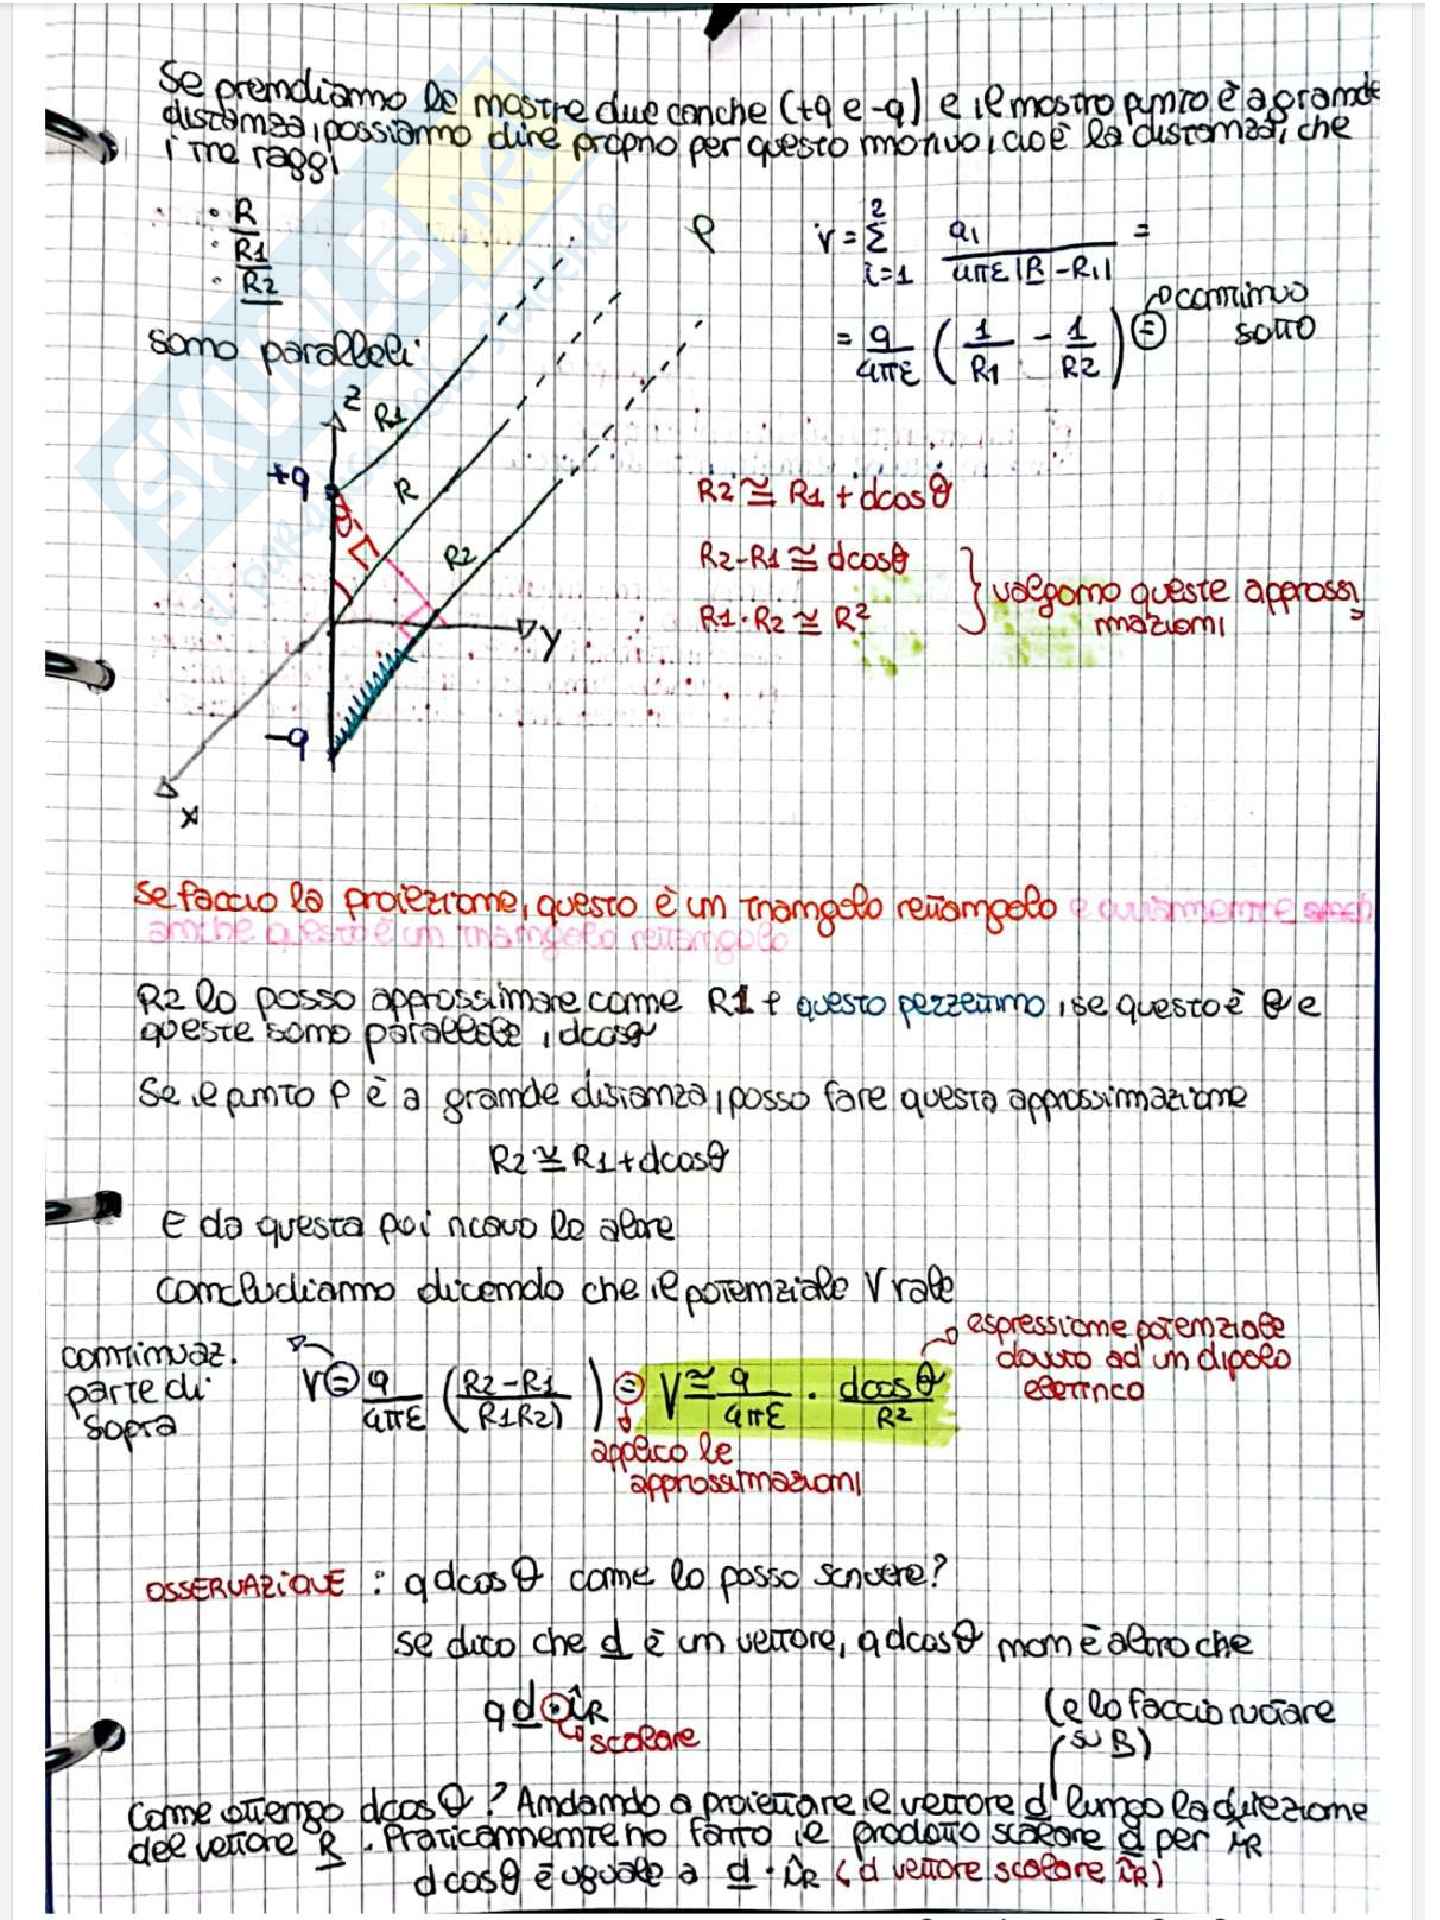 Se prendiamo le nostre due cariche (+q e -q) e il nostro punto è a grande
distanza, possiamo dire proprio per questo motivo, cioè la distanza, che
i tre raggi
· R
· R1
· R2
sono paralleli
P
V = Σ_{i=1}^{2} qi / 4πε|R - Ri| =
= q/4πε (1/R1 - 1/R2) = continuo
sotto
z
R1
+q
R
R2
y
-q
x
R2 ≅ R1 + dcosθ
R2-R1 ≅ dcosθ
R1·R2 ≅ R²
} valgono queste approssi
mazioni
Se faccio la proiezione, questo è un triangolo rettangolo e ovviamente anch
anche questo è un triangolo rettangolo
R2 lo posso approssimare come R1 + questo pezzettino, se questo è θ e
queste sono parallele, dcosθ
Se il punto P è a grande distanza, posso fare questa approssimazione
R2 ≅ R1 + dcosθ
E da questa poi ricavo le altre
Concludiamo dicendo che il potenziale V vale
continuaz.
parte di
sopra
V = q/4πε (R2-R1 / R1R2) = V ≅ q/4πε · dcosθ/R²
espressione potenziale
dovuto ad un dipolo
elettrico
applico le
approssimazioni
OSSERVAZIONE : qdcosθ come lo posso scrivere?
se dico che d è un vettore, qdcosθ non è altro che
qd · îR
scalare
(e lo faccio ruotare
su R)
Come ottengo dcosθ? Andando a proiettare il vettore d lungo la direzione
del vettore R. Praticamente ho fatto il prodotto scalare d per îR
dcosθ è uguale a d · îR (d vettore scalare îR)